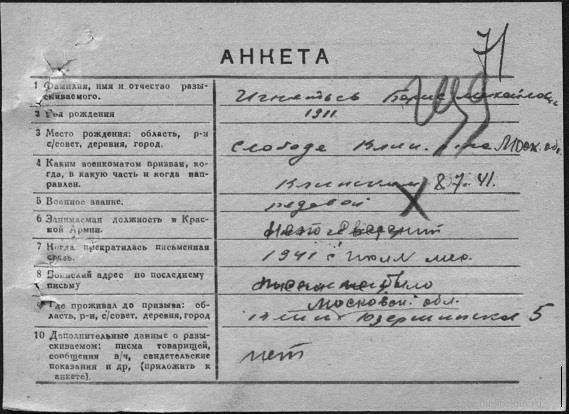 71
АНКЕТА
1 Фамилия, имя и отчество разы-
скиваемого.
Игнатьев Борис Михайлович
2 Год рождения
1911.
3 Место рождения: область, р-н
с/совет, деревня, город.
Слобода Клин. р-на Моск. обл.
4 Каким военкоматом призван, ко-
гда, в какую часть и когда на-
правлен.
Клинским 8.7.41.
5 Военное звание.
рядовой
6 Занимаемая должность в Крас-
ной Армии.
7 Когда прекратилась письменная
связь.
1941 с июля мес.
8 Воинский адрес по последнему
письму
не было
9 Где проживал до призыва: об-
ласть, р-н, с/совет, деревня, город
Московской обл.
5
10 Дополнительные данные о разы-
скиваемом: письма товарищей,
сообщения в/ч, свидетельские
показания и др, (приложить к
анкете).
нет